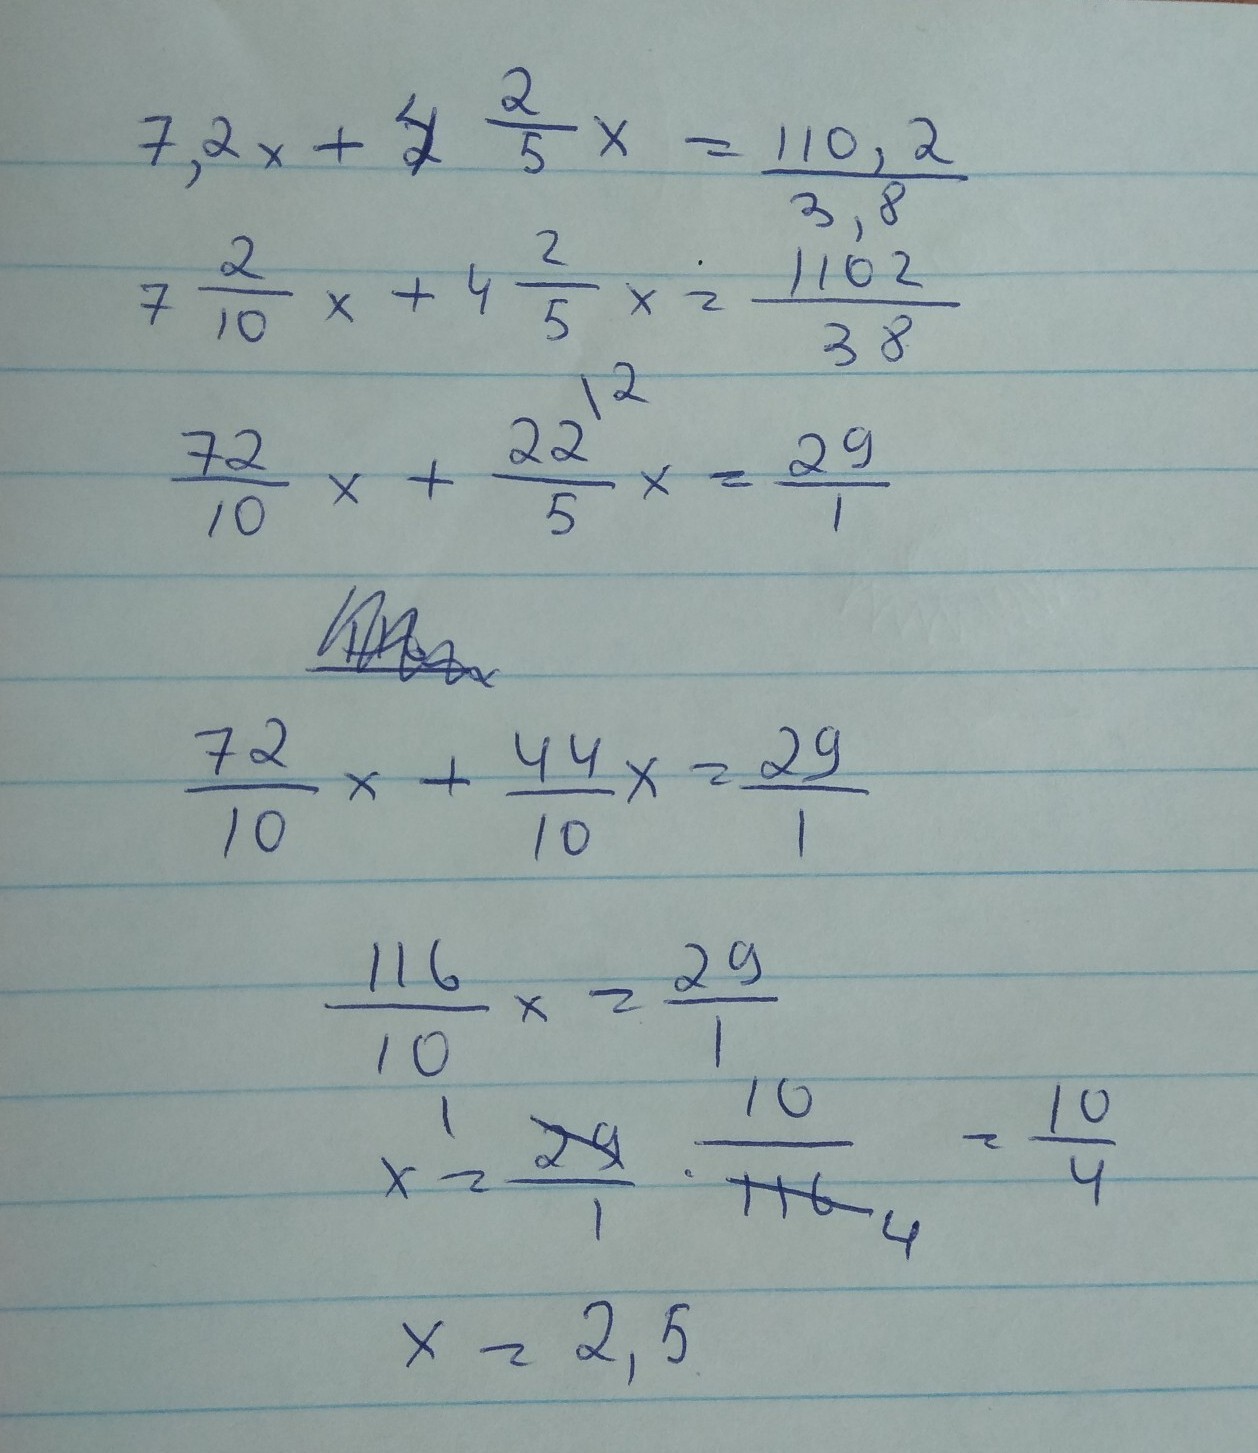 7,2x + 4 2/5 x = 110,2/3,8
7 2/10 x + 4 2/5 x = 1102/38
72/10 x + 22/5 \2 x = 29/1
72/10 x + 44/10 x = 29/1
116/10 x = 29/1
x = 29/1 1 · 10/116 4 = 10/4
x = 2,5